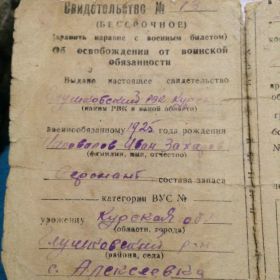 Свидетельство №
(БЕССРОЧНОЕ)
(хранить наравне с военным билетом)
Об освобождении от воинской
обязанности
Выдано настоящее свидетельство
Глушковский РВК Курск
(каким РВК и какой области)
военнообязанному 1925 года рождения
Иван Захаров
(фамилия, имя, отчество)
Сержант состава запаса
категории ВУС №
уроженцу Курской об
(области, города)
Глушковский р-н
(района, села)
с. Алексеевка